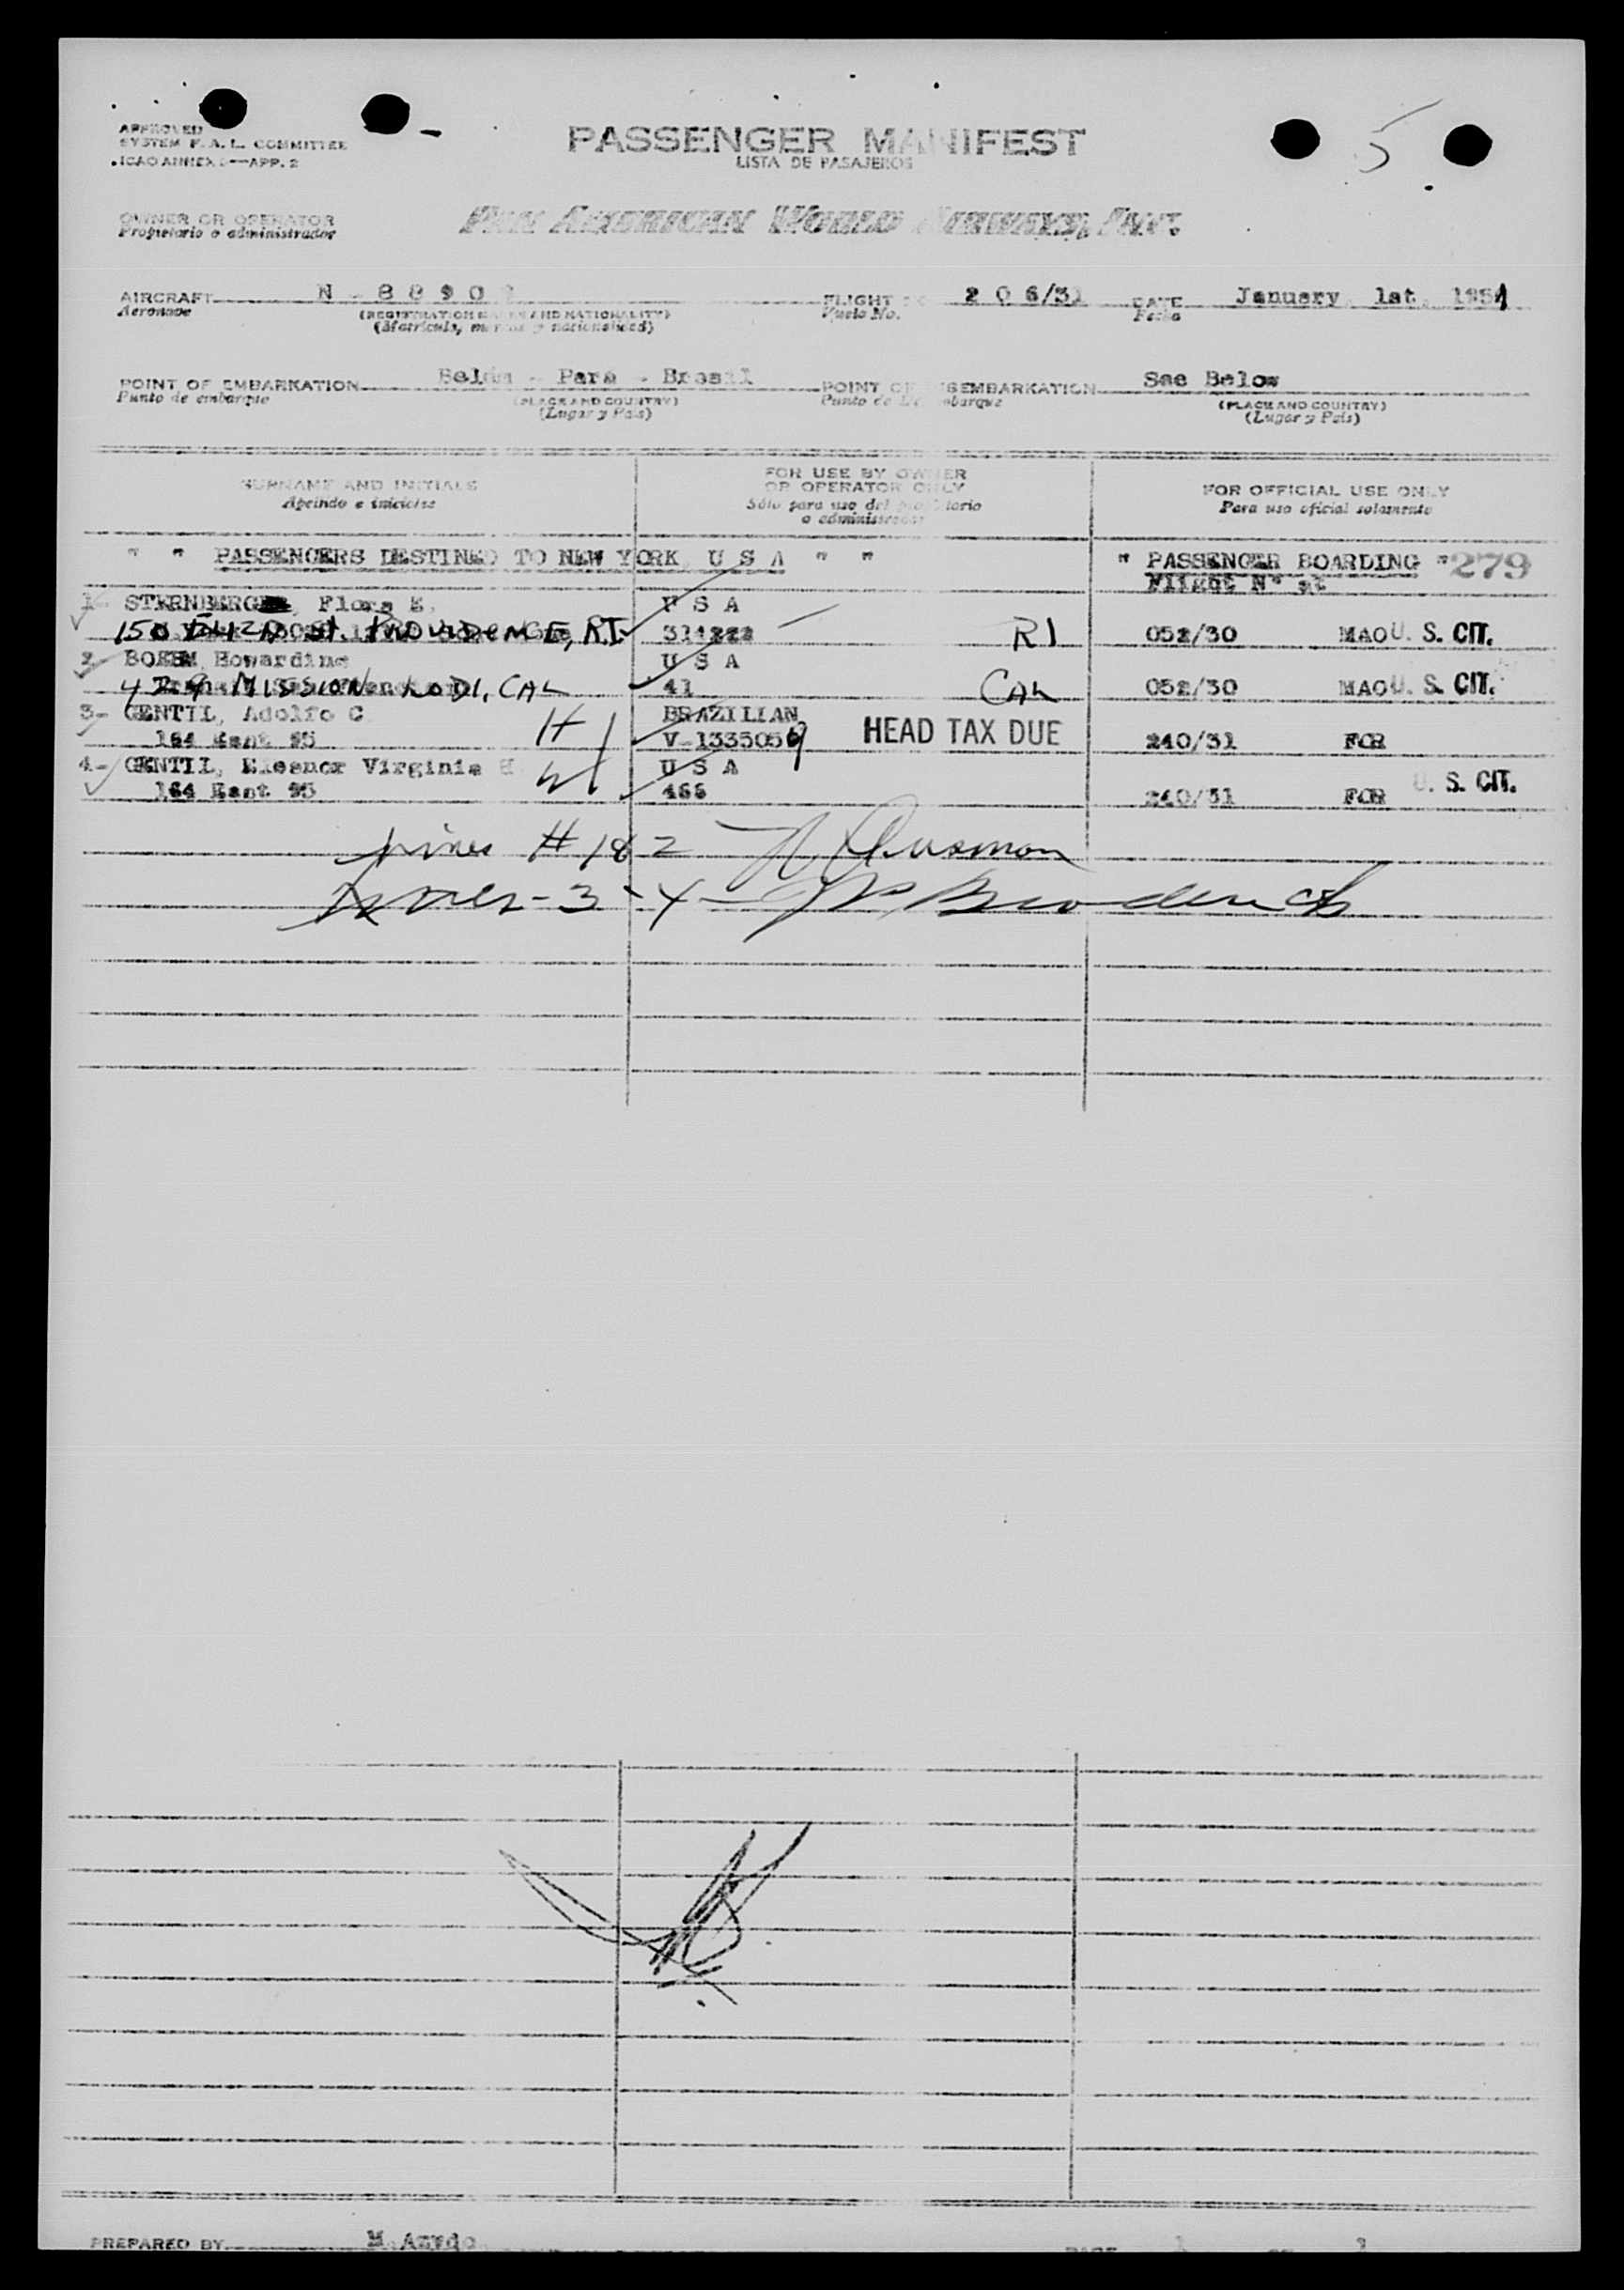 APPROVED
SYSTEM F. A. L. COMMITTEE
ICAO ANNEX —APP. 2
PASSENGER MANIFEST
LISTA DE PASAJEROS
5
OWNER OR OPERATOR
Propietario o administrador
PAN AMERICAN WORLD AIRWAYS, INC.
AIRCRAFT N - 8 8 9 0 FLIGHT 2 0 6/31 DATE January 1st 1951
Aeronave (REGISTRATION MARKS AND NATIONALITY) Vuelo No. Fecha
(Matrícula, marcas y nacionalidad)
POINT OF EMBARKATION Belém - Para - Brasil POINT OF DISEMBARKATION See Below
Punto de embarque (PLACE AND COUNTRY) Punto de Desembarque (PLACE AND COUNTRY)
(Lugar y País) (Lugar y País)
SURNAME AND INITIALS FOR USE BY OWNER OR OPERATOR ONLY FOR OFFICIAL USE ONLY
Apellido e iniciales Sólo para uso del propietario o administrador Para uso oficial solamente
" " PASSENGERS DESTINED TO NEW YORK U S A " " " PASSENGER BOARDING " 279
Flight Nº at
1- STERNBERG, Flora E. U S A
150 St. PROVIDENCE, RI RI 052/30 MAO U. S. CIT.
2- BOEHM Howardine U S A
429 MISSION LODI, CAL 41 CAL 052/30 MAO U. S. CIT.
3- GENTIL, Adolfo C H BRAZILIAN
164 East 95 V-1335059 HEAD TAX DUE 240/31 FOR
4- GENTIL, Eleanor Virginia H W U S A
164 East 95 466 240/31 FOR U. S. CIT.
# 1 & 2
- 3 - 4 -
PREPARED BY M Azvdo PAGE 1 OF 1